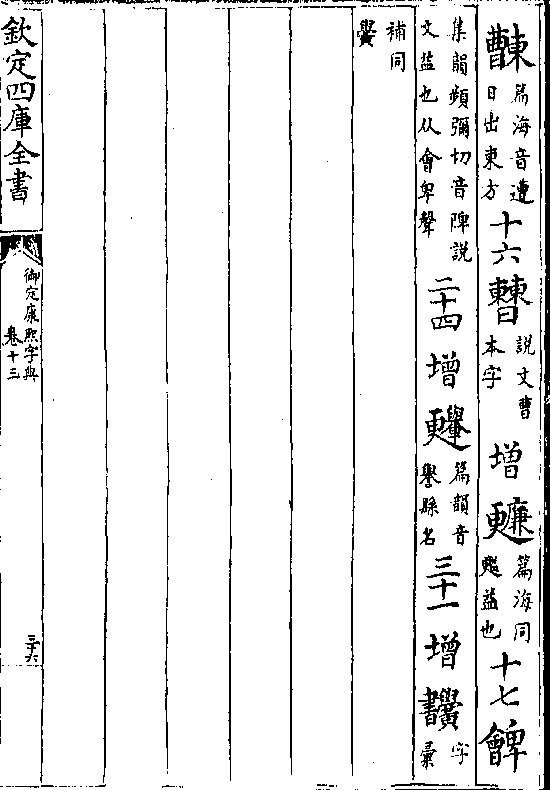 篇海音遭日出東方 十六 𣍘 說文曹本字 增 篇海同益也 十七 朇
集韻頻彌切音陴説文益也从會卑聲 二十四 增 篇韻音譽縣名 三十一 增 字彙
補同黌
欽定四庫全書
御定康熙字典
卷十三
三十六